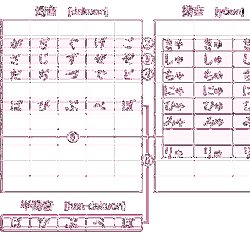 濁音 [dakuon]
が ぎ ぐ げ ご
ざ じ ず ぜ ぞ
だ ぢ づ で ど
ば び ぶ べ ぼ
半濁音 [han-dakuon]
ぱ ぴ ぷ ぺ ぽ
拗音 [yōon]
きゃ きゅ
しゃ しゅ
ちゃ ちゅ
にゃ にゅ
ひゃ ひゅ
みゃ みゅ
りゃ りゅ